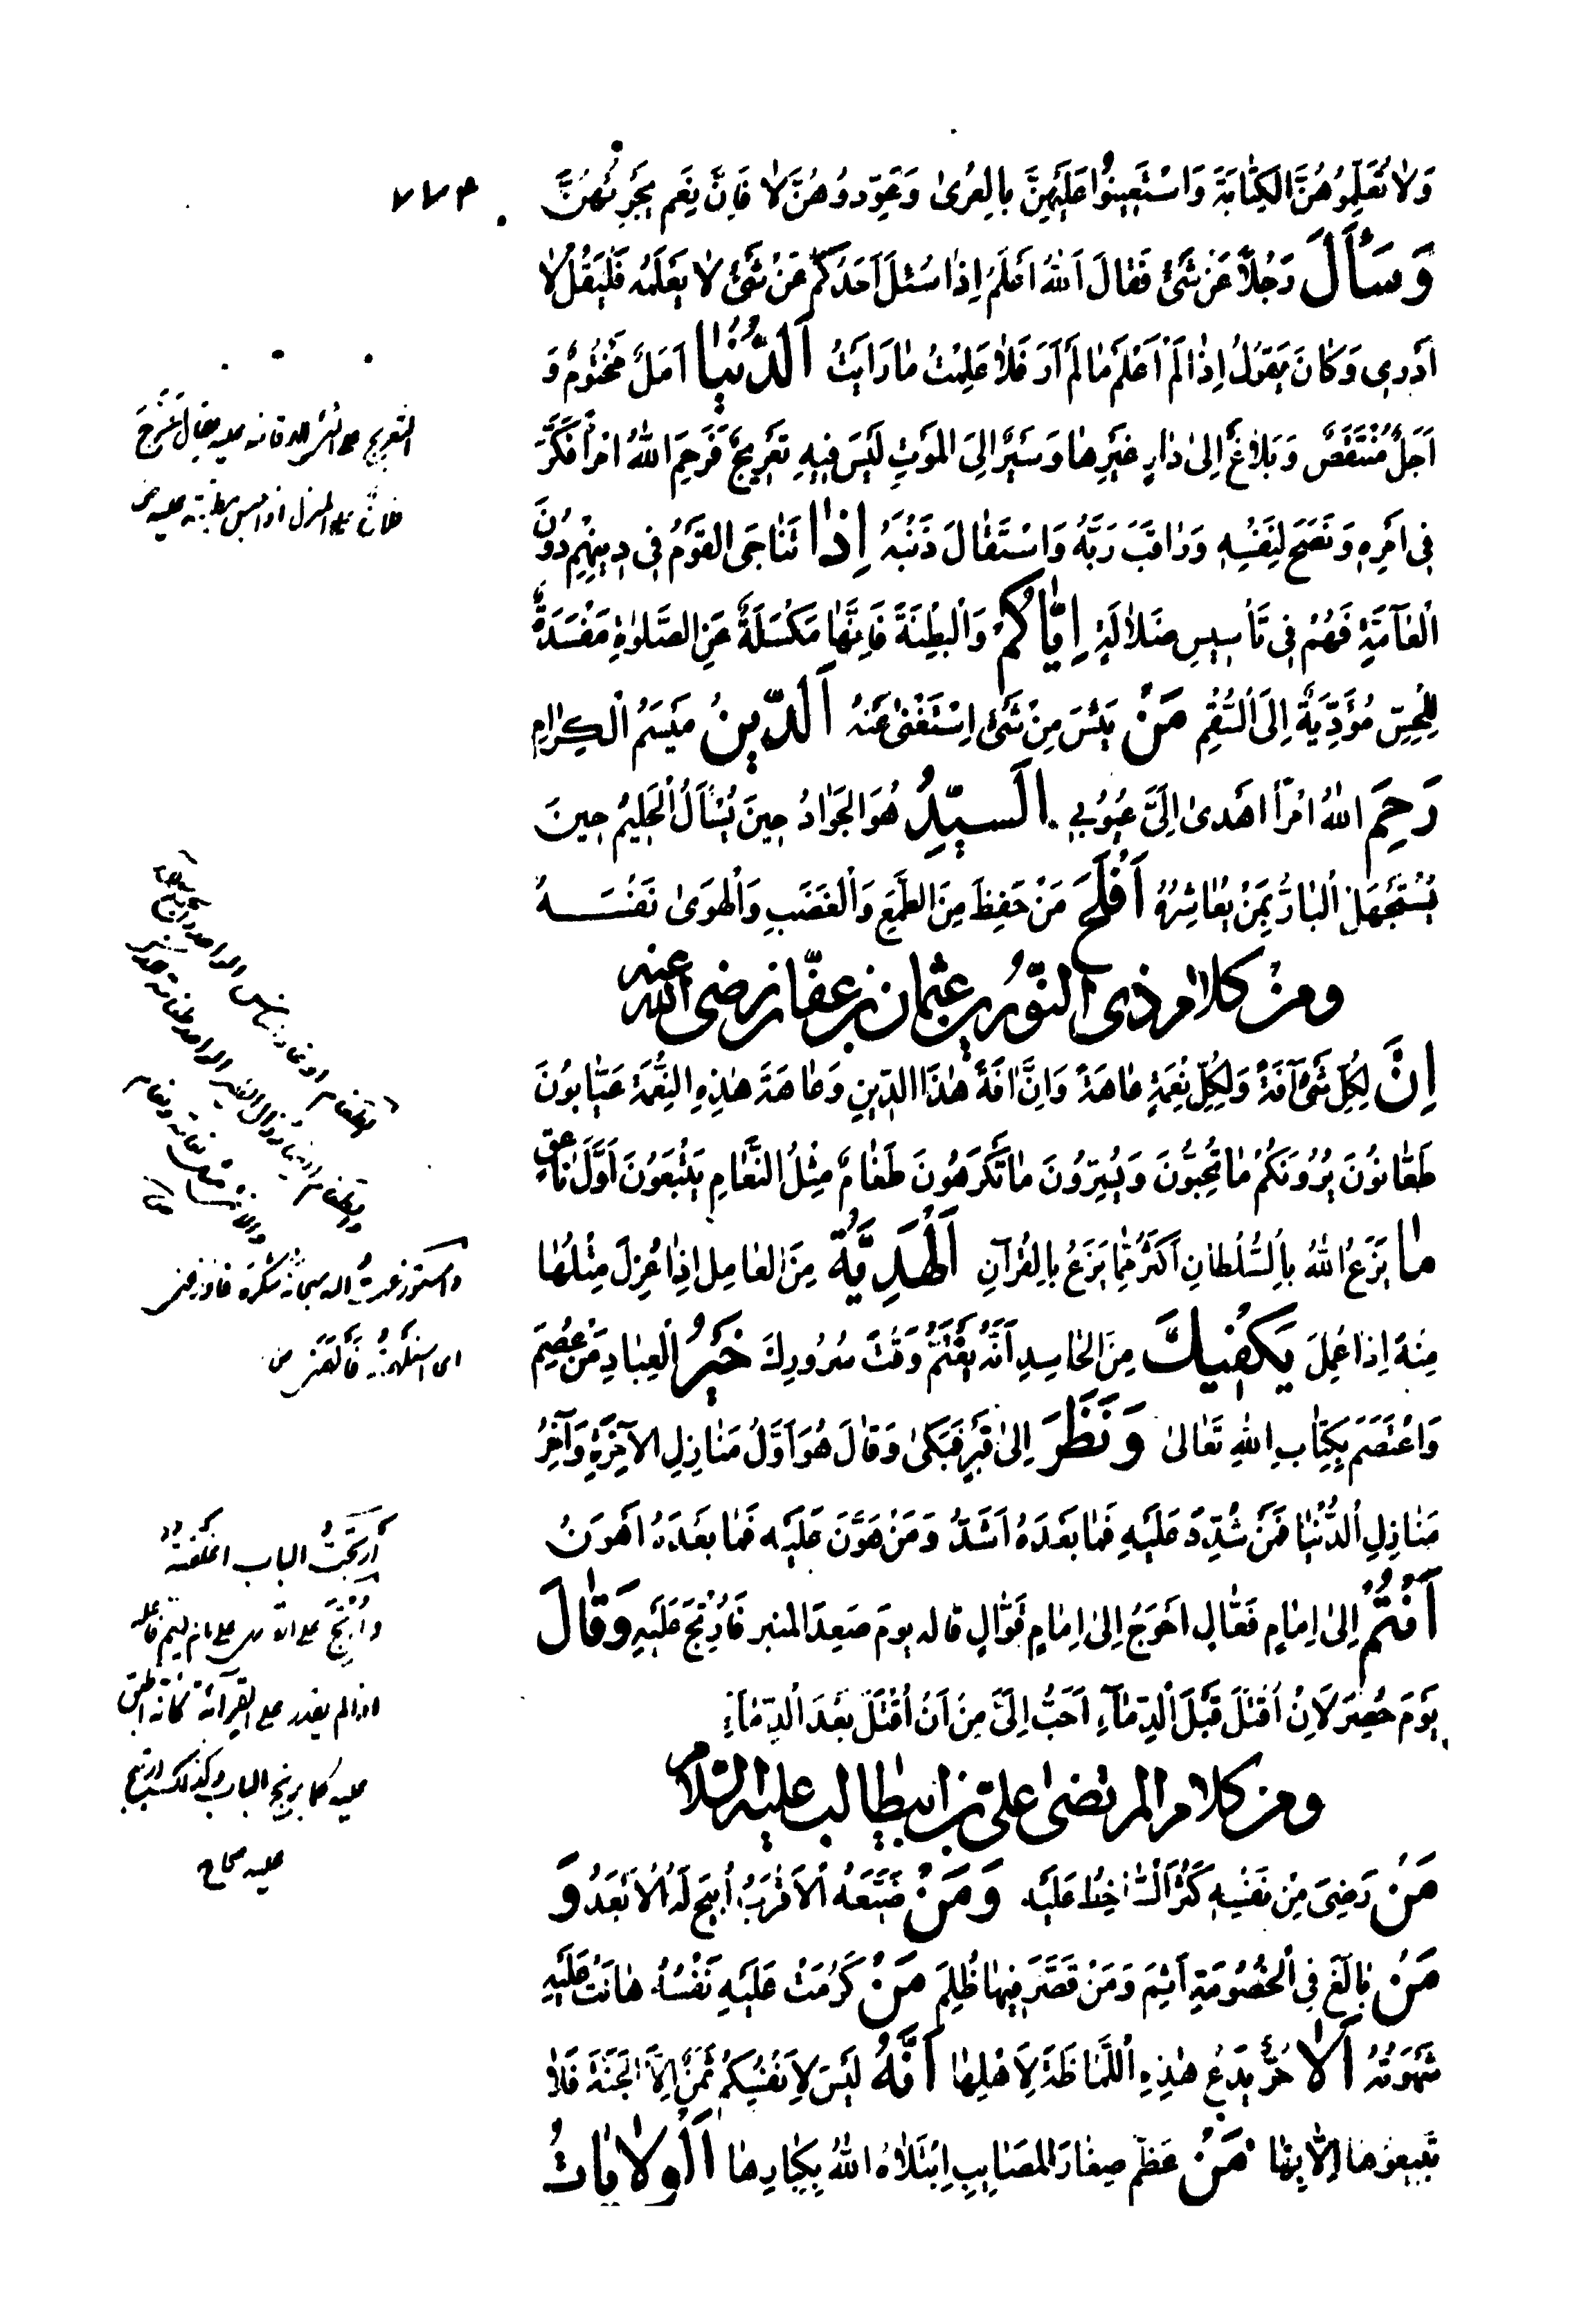 وَلَا تُعَلِّمُوهُنَّ الْكِتَابَةَ وَاسْتَعِينُوا عَلَيْهِنَّ بِالْعُرْىٰ وَعَوِّدُوهُنَّ لَا فَاِنَّ نَعَم يُجَرِّئُهُنَّ
وَسَأَلَ رَجُلًا عَنْ شَئٍ فَقَالَ اَللّٰهُ اَعْلَمُ اِذَا سُئِلَ اَحَدُكُمْ عَنْ شَئٍ لَا يَعْلَمُه فَلْيَقُلْ لَا
اَدْرِى وَكَانَ يَقُولُ اِذَا لَمْ اَعْلَمْ مَا لَمْ اَرَ فَلَا عَلِمْتُ مَا رَاَيْتُ اَلدُّنْيَا اَمَلٌ مَخْتُومٌ وَ
اَجَلٌ مُنْتَقَصٌ وَبَلَاغٌ اِلىٰ دَارٍ غَيْرِهَا وَسَيْرٌ اِلَى الْمَوْتِ لَيْسَ فِيهِ تَعْرِيجٌ فَرَحِمَ اللّٰهُ امْرَأً فَكَّرَ
فِى اَمْرِهِ وَنَصَحَ لِنَفْسِهِ وَرَاقَبَ رَبَّهُ وَاسْتَقَالَ ذَنْبَهُ اِذَا تَنَاجَى الْقَوْمُ فِى دِينِهِمْ دُونَ
الْعَامَّةِ فَهُمْ فِى تَأْسِيسِ ضَلَالَةٍ اِيَّاكُمْ وَالْبِطْنَةَ فَاِنَّهَا مَكْسَلَةٌ عَنِ الصَّلٰوةِ مَفْسَدَةٌ
لِلْجِسْمِ مُؤَدِّيَةٌ اِلَى السُّقْمِ مَنْ يَئِسَ مِنْ شَئٍ اِسْتَغْنىٰ عَنْهُ اَلدِّينُ مِيسَمُ الْكِرَامِ
رَحِمَ اللّٰهُ امْرَأً اَهْدىٰ اِلَىَّ عُيُوبِى اَلسَّيِّدُ هُوَ الْجَوَادُ حِينَ يُسْاَلُ الْحَلِيمُ حِينَ
يُسْتَجْهَلُ الْبَارُّ بِمَنْ يُعَاشِرُهُ اَفْلَحَ مَنْ حَفِظَ مِنَ الطَّمَعِ وَالْغَضَبِ وَالْهَوىٰ نَفْسَهُ
ومن كلام ذى النّورين عثمان بن عفّان رضى الله عنه
اِنَّ لِكُلِّ شَئٍ آفَةً وَلِكُلِّ نِعْمَةٍ عَاهَةً وَاِنَّ اٰفَةَ هٰذَا الدِّينِ وَعَاهَةَ هٰذِهِ النِّعْمَةِ عَيَّابُونَ
طَعَّانُونَ يُرُونَكُمْ مَا تُحِبُّونَ وَيُسِرُّونَ مَا تَكْرَهُونَ طَغَامٌ مِثْلُ النَّعَامِ يَتْبَعُونَ اَوَّلَ نَاعِقٍ
مَا يَزَعُ اللّٰهُ بِالسُّلْطَانِ اَكْثَرُ مِمَّا يَزَعُ بِالْقُرْآنِ اَلْهَدِيَّةُ مِنَ الْعَامِلِ اِذَا عُزِلَ مِثْلُهَا
مِنْهُ اِذَا عُمِلَ يَكْفِيكَ مِنَ الْحَاسِدِ اَنَّهُ يَغْتَمُّ وَقْتَ سُرُورِكَ خَيْرُ الْعِبَادِ مَنْ عُصِمَ
وَاعْتَصَمَ بِكِتَابِ اللّٰهِ تَعَالىٰ وَنَظَرَ اِلىٰ قَبْرٍ فَبَكىٰ وَقَالَ هُوَ اَوَّلُ مَنَازِلِ الْآخِرَةِ وَآخِرُ
مَنَازِلِ الدُّنْيَا فَمَنْ شُدِّدَ عَلَيْهِ فَمَا بَعْدَهُ اَشَدُّ وَمَنْ هُوِّنَ عَلَيْهِ فَمَا بَعْدَهُ اَهْوَنُ
اَنْتُمْ اِلىٰ اِمَامٍ فَعَّالٍ اَحْوَجُ اِلىٰ اِمَامٍ قَوَّالٍ قاله يوم صَعِدَ المنبر فَاُرْتِجَ عَلَيْهِ وَقَالَ
يَوْمَ حُصِرَ لَاَنْ اُقْتَلَ قَبْلَ الدِّمَآءِ اَحَبُّ اِلَىَّ مِنْ اَنْ اُقْتَلَ بَعْدَ الدِّمَآءِ
ومن كلام المرتضى على بن ابيطالب عليه السّلام
مَنْ رَضِىَ مِنْ نَفْسِهِ كَثُرَ السَّاخِطُ عَلَيْهِ وَمَنْ ضَيَّعَهُ الْاَقْرَبُ اُبِيحَ لَهُ الْاَبْعَدُ وَ
مَنْ بَالَغَ فِى الْخُصُومَةِ اَثِمَ وَمَنْ قَصَّرَ فِيهَا ظُلِمَ مَنْ كَرُمَتْ عَلَيْهِ نَفْسُهُ هَانَتْ عَلَيْهِ
شَهْوَتُهُ اَلَا حُرٌّ يَدَعُ هٰذِهِ اللُّمَاظَةَ لِاَهْلِهَا اَنَّهُ لَيْسَ لِاَنْفُسِكُمْ ثَمَنٌ اِلَّا الْجَنَّةَ فَلَا
تَبِيعُوهَا اِلَّا بِهَا مَنْ عَظَّمَ صِغَارَ الْمَصَايِبِ اِبْتَلَاهُ اللّٰهُ بِكِبَارِهَا اَلْوِلَايَاتُ
التعريج على الشئ الاقامة عليه يقال عَرَّجَ
فلانٌ على المنزل اذا حبس مطيته عليه
أَرتَجتُ الباب اغلقته
اذا لم يقدر على القراءة كانه اطبق
عليه كما يرتج الباب وكذلك ارتتج
عليه صحاح